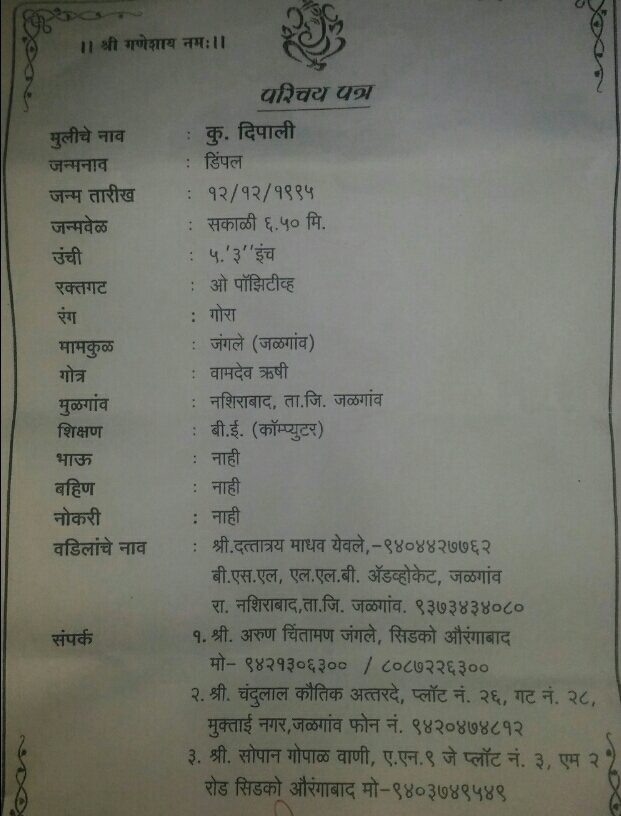 ।। श्री गणेशाय नमः।।
परिचय पत्र
मुलीचे नाव : कु. दिपाली
जन्मनाव : डिंपल
जन्म तारीख : १२/१२/१९९५
जन्मवेळ : सकाळी ६.५० मि.
उंची : ५.'३''इंच
रक्तगट : ओ पॉझिटीव्ह
रंग : गोरा
मामकुळ : जंगले (जळगांव)
गोत्र : वामदेव ऋषी
मुळगांव : नशिराबाद, ता.जि. जळगांव
शिक्षण : बी.ई. (कॉम्प्युटर)
भाऊ : नाही
बहिण : नाही
नोकरी : नाही
वडिलांचे नाव : श्री.दत्तात्रय माधव येवले,-९४०४४२७७६२
बी.एस.एल, एल.एल.बी. ॲडव्होकेट, जळगांव
रा. नशिराबाद,ता.जि. जळगांव. ९३७३४३४०८०
संपर्क १. श्री. अरुण चिंतामण जंगले, सिडको औरंगाबाद
मो- ९४२१३०६३०० / ८०८७२२६३००
२. श्री. चंदुलाल कौतिक अत्तरदे, प्लॉट नं. २६, गट नं. २८,
मुक्ताई नगर,जळगांव फोन नं. ९४२०४७४८१२
३. श्री. सोपान गोपाळ वाणी, ए.एन.९ जे प्लॉट नं. ३, एम २
रोड सिडको औरंगाबाद मो-९४०३७४९५४९